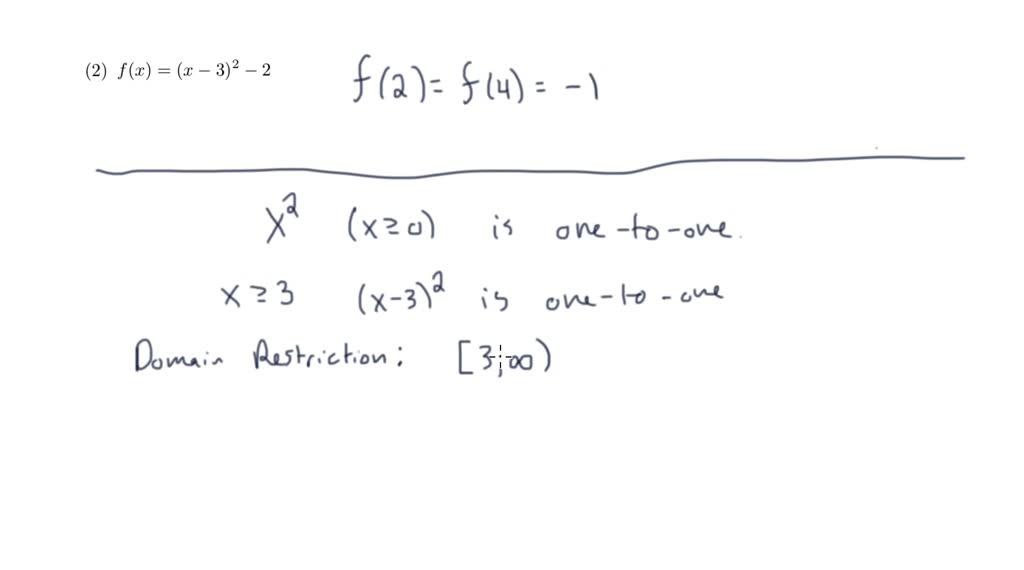 (2) f(x) = (x − 3)² − 2
f(2) = f(4) = -1
x² (x ≥ 0) is one-to-one.
x ≥ 3 (x-3)² is one-to-one
Domain Restriction: [3, ∞)